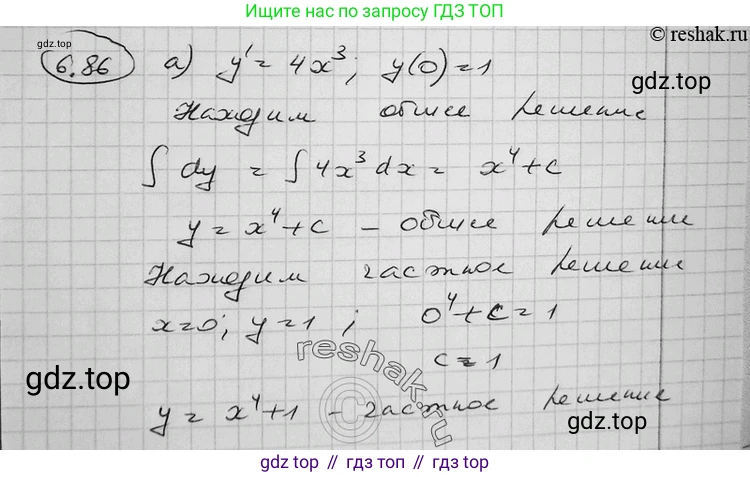 Ищите нас по запросу ГДЗ ТОП
© reshak.ru
gdz.top
6.86 а) y' = 4x³; y(0)=1
gdz.top
Находим общее решение
∫ dy = ∫ 4x³ dx = x⁴+c
y = x⁴+c – общее решение
Находим частное решение
x=0; y=1; 0⁴+c=1
c=1
reshak.ru
©
gdz.top
y = x⁴+1 – частное решение
gdz.top
gdz.top // гдз топ // гдз.топ